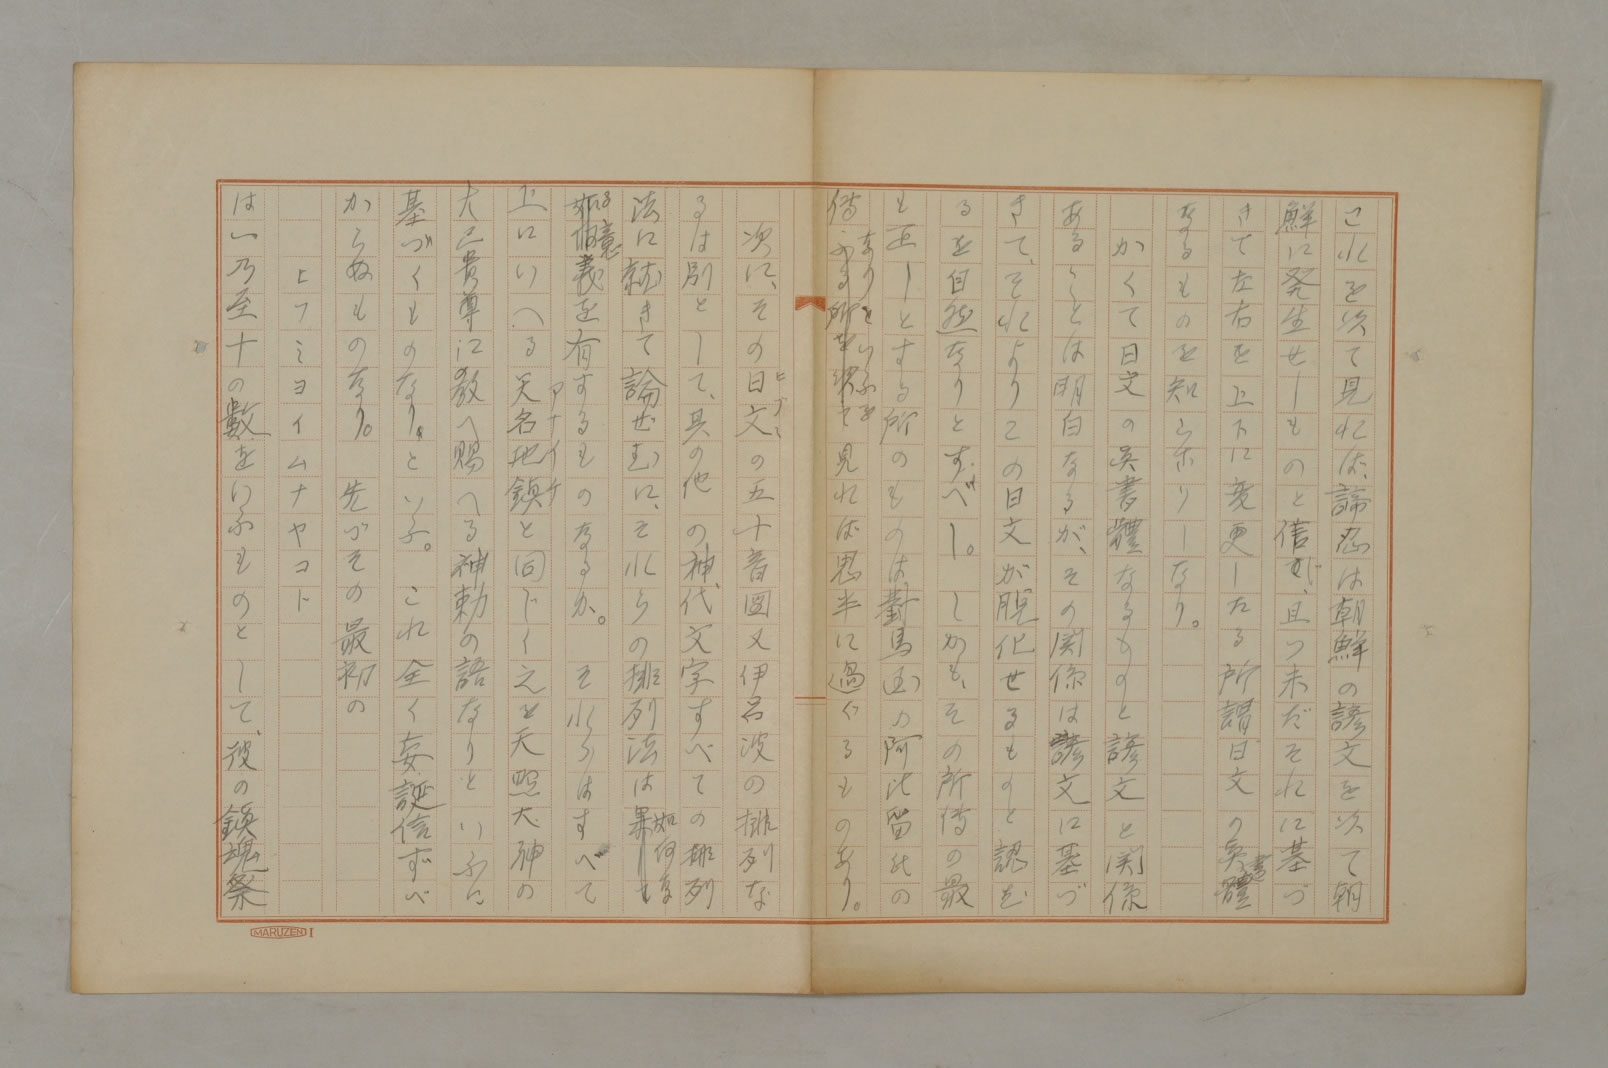 これを以て見れば、諦忍は朝鮮の諺文を以て朝
鮮に発生せしものと信ぜず、且つ未だそれに基づ
きて左右を上下に変更したる所謂日文の眞書體
なるものを知らざりしなり。
かくて日文の眞書體なるものと諺文と関係
あることは明白なるが、その関係は諺文に基づ
きて、それよりこの日文が脱化せるものと認む
るを自然なりとすべし。しかも、その所傳の最
も正しとする所のものは對馬国の阿比留氏の
傳ふる所なりといふを見れば思半に過ぐるものあり。
次に、その日文の五十音圖又伊呂波の排列な
ヒフミ
るは別として、其の他の神代文字すべての排列
法に就きて論せむに、それらの排列法は如何なる意
義を有するものなるか。それらはすべて
上にいへる天名地鎮と同じく之を天照大神の
アナイチ
大己貴尊に教へ賜へる神勅の語なりといふに
基づくものなり。といふ。これ全く妄誕信ずべ
からぬものなり。先づその最初の
ヒフミヨイムナヤコト
は一乃至十の數をいふものとして、彼の鎮魂祭
MARUZEN I